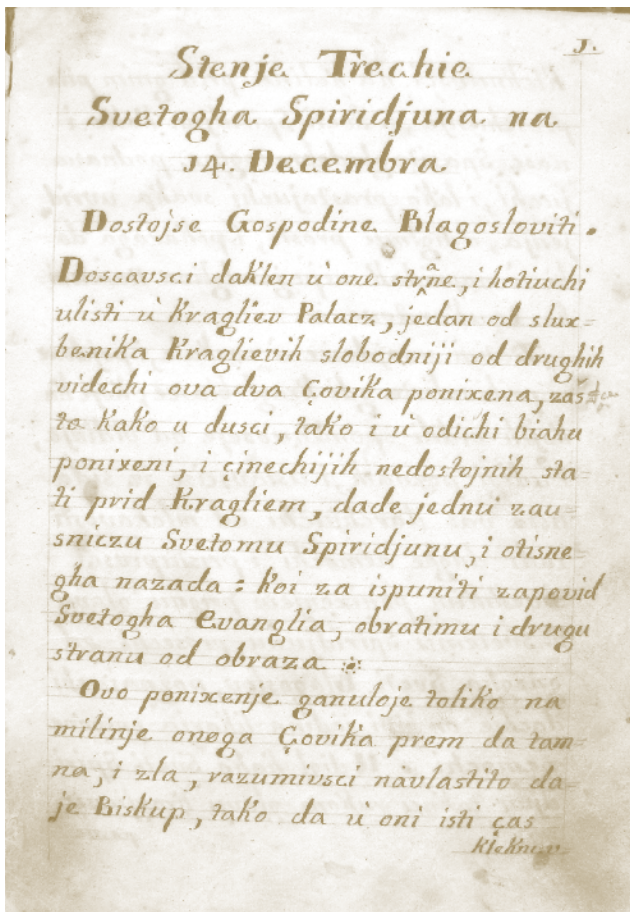 1.
Stenje Trechie
Svetogha Spiridjuna na
14. Decembra
Dostojse Gospodine Blagosloviti.
Doscavsci daklen ù one strane, i hotiuchi
ulisti ù Kragliev Palacz, jedan od slux=
benika Kraglievih slobodniji od drughih
videchi ova dva Çovika ponixena, zaš=
to kako u dusci, tako i ù odichi biahu
ponixeni, i çinechijih nedostojnih sta=
ti prid Kragliem, dade jednu zau=
sniczu Svetomu Spiridjunu, i otisne=
gha nazada: koi za ispuniti zapovid
Svetogha Evanglia, obratimu i drugu
stranu od obraza.
Ovo ponixenje ganuloje toliko na
milinje onoga Çovika prem da tam=
na, i zla, razumivsci navlastito da=
je Biskup, tako da ù oni isti ças